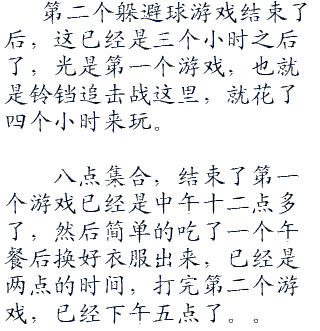 第二个躲避球游戏结束了
后，这已经是三个小时之后
了，光是第一个游戏，也就
是铃铛追击战这里，就花了
四个小时来玩。
八点集合，结束了第一
个游戏已经是中午十二点多
了，然后简单的吃了一个午
餐后换好衣服出来，已经是
两点的时间，打完第二个游
戏，已经下午五点了。。